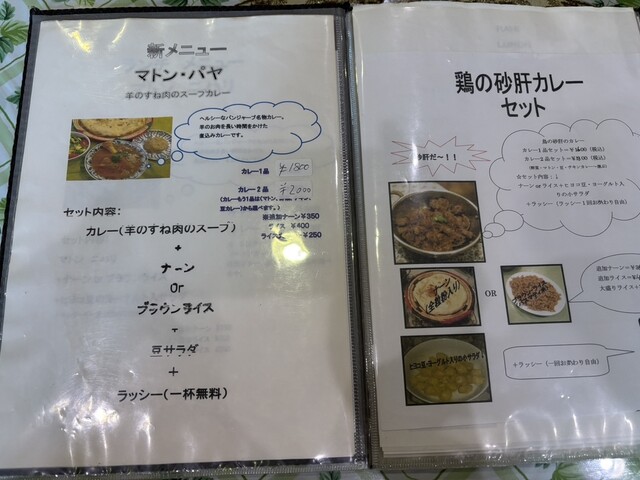 新メニュー
マトン・パヤ
羊のすね肉のスープカレー
ヘルシーなパンジャーブ名物カレー。
羊のお肉を長い時間をかけた
煮込みカレーです。
カレー1品 ¥1800
カレー2品 ¥2000
(カレーもう1品は(マトン、
豆カレー)から選べます。)
※追加ナーン¥350
¥400
¥250
セット内容:
カレー(羊のすね肉のスープ)
+
ナーン
Or
ブラウンライス
+
豆サラダ
+
ラッシー(一杯無料)
鶏の砂肝カレー
セット
砂肝だ～!!
鶏の砂肝のカレー
カレー1品セット=
カレー2品セット=
☆セット内容:
ナーン or ライス+ヒヨコ豆・ヨーグルト入
りの小サラダ
+ラッシー(ラッシー1回お代わり自由)
ナーン
(全粒粉入り)
OR
追加ナーン=
追加ライス=
大盛りライス+
ヒヨコ豆・ヨーグルト入りの小サラダ
+ラッシー(一回お代わり自由)